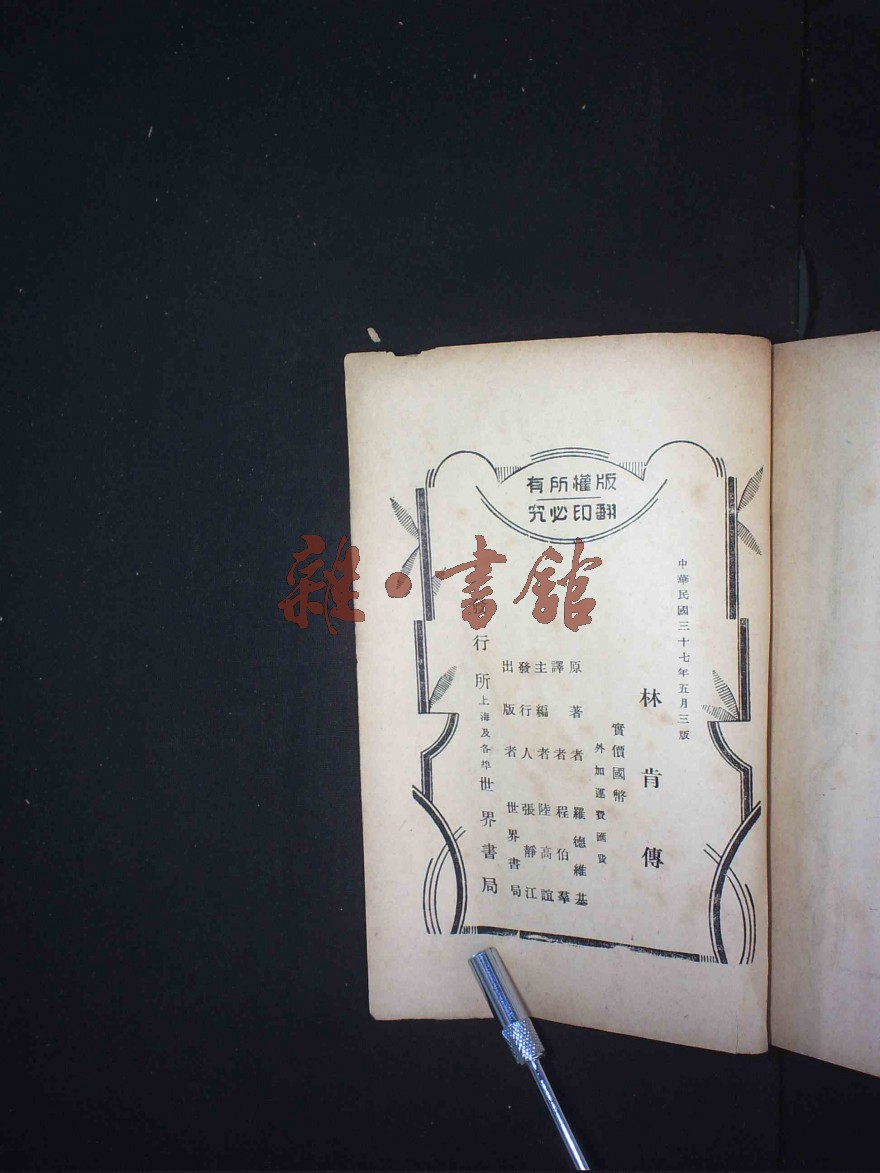 版權所有
翻印必究
中華民國三十七年五月三版
林肯傳
實價國幣
外加運費匯費
原著者 羅德維基
譯者 程伯羣
主編者 陸高誼
發行人 張靜江
出版者 世界書局
行所 上海及各埠 世界書局
雜·書館